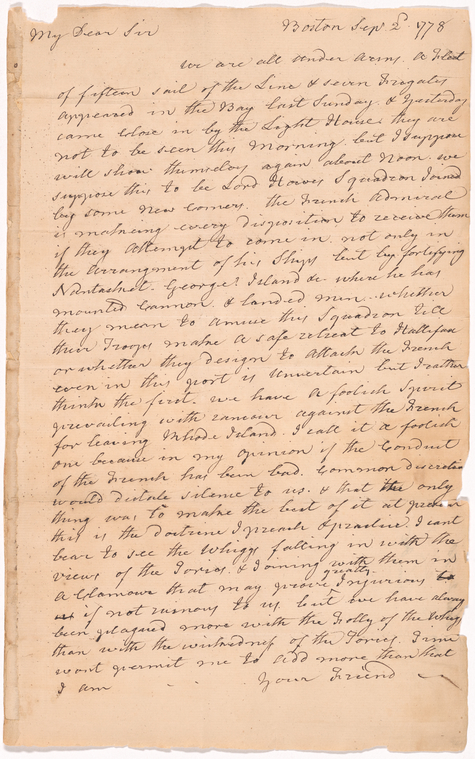 My Dear Sir Boston Sep 2d 1778
we are all under arms. a Fleet
of fifteen sail of the Line & seven Fregates
appeared in the Bay last Sunday. & Yesterday
came Close in by the Light House. they are
not to be seen this morning. but I suppose
will show themselves again about Noon. we
suppose this to be Lord Howes Squadron Joined
by some New Comers. the French Admiral
is makeing every disposition to receive them
if they attempt to come in. not only in
the arrangement of his Ships but by fortifying
Nantasket. Georges Island &c where he has
mounted Cannon. & landed men. whether
they mean to amuse this Squadron till
their Troops make a safe retreat to Hallifax
or whether they design to attack the French
even in this port is uncertain but I rather
think the first. we have a foolish Spirit
prevailing with rancour against the French
for leaving Rhode Island. I call it a foolish
one because in my opinion if the Conduct
of the French has been bad. Common discretion
would dictate silence to us. & that the only
thing was to make the best of it at present
this is the doctrine I preach & practice. I cant
bear to see the Whiggs falling in with the
views of the Tories. & Joining with them in
a Clamour that may prove greatly Injurious
if not ruinous to us. but we have always
been plagued more with the Folly of the Whigs
than with the wickedness of the Tories. Time
wont permit me to add more than that
I am Your Friend